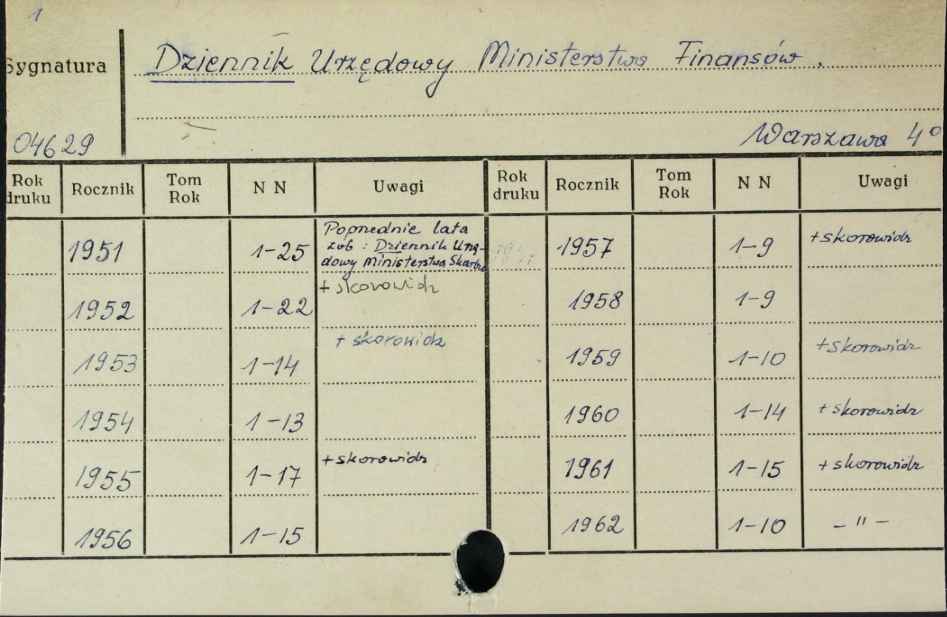 1
Sygnatura
Dziennik Urzędowy Ministerstwa Finansów.
04629
Warszawa 4°
Rok druku Rocznik Tom Rok N N Uwagi Rok druku Rocznik Tom Rok N N Uwagi
1951 1-25 Poprzednie lata
zob: Dziennik Urzę-
dowy Ministerstwa Skarbu
1952 1-22 + skorowidz
1953 1-14 + skorowidz
1954 1-13
1955 1-17 + skorowidz
1956 1-15
1957 1-9 + skorowidz
1958 1-9
1959 1-10 + skorowidz
1960 1-14 + skorowidz
1961 1-15 + skorowidz
1962 1-10 - " -